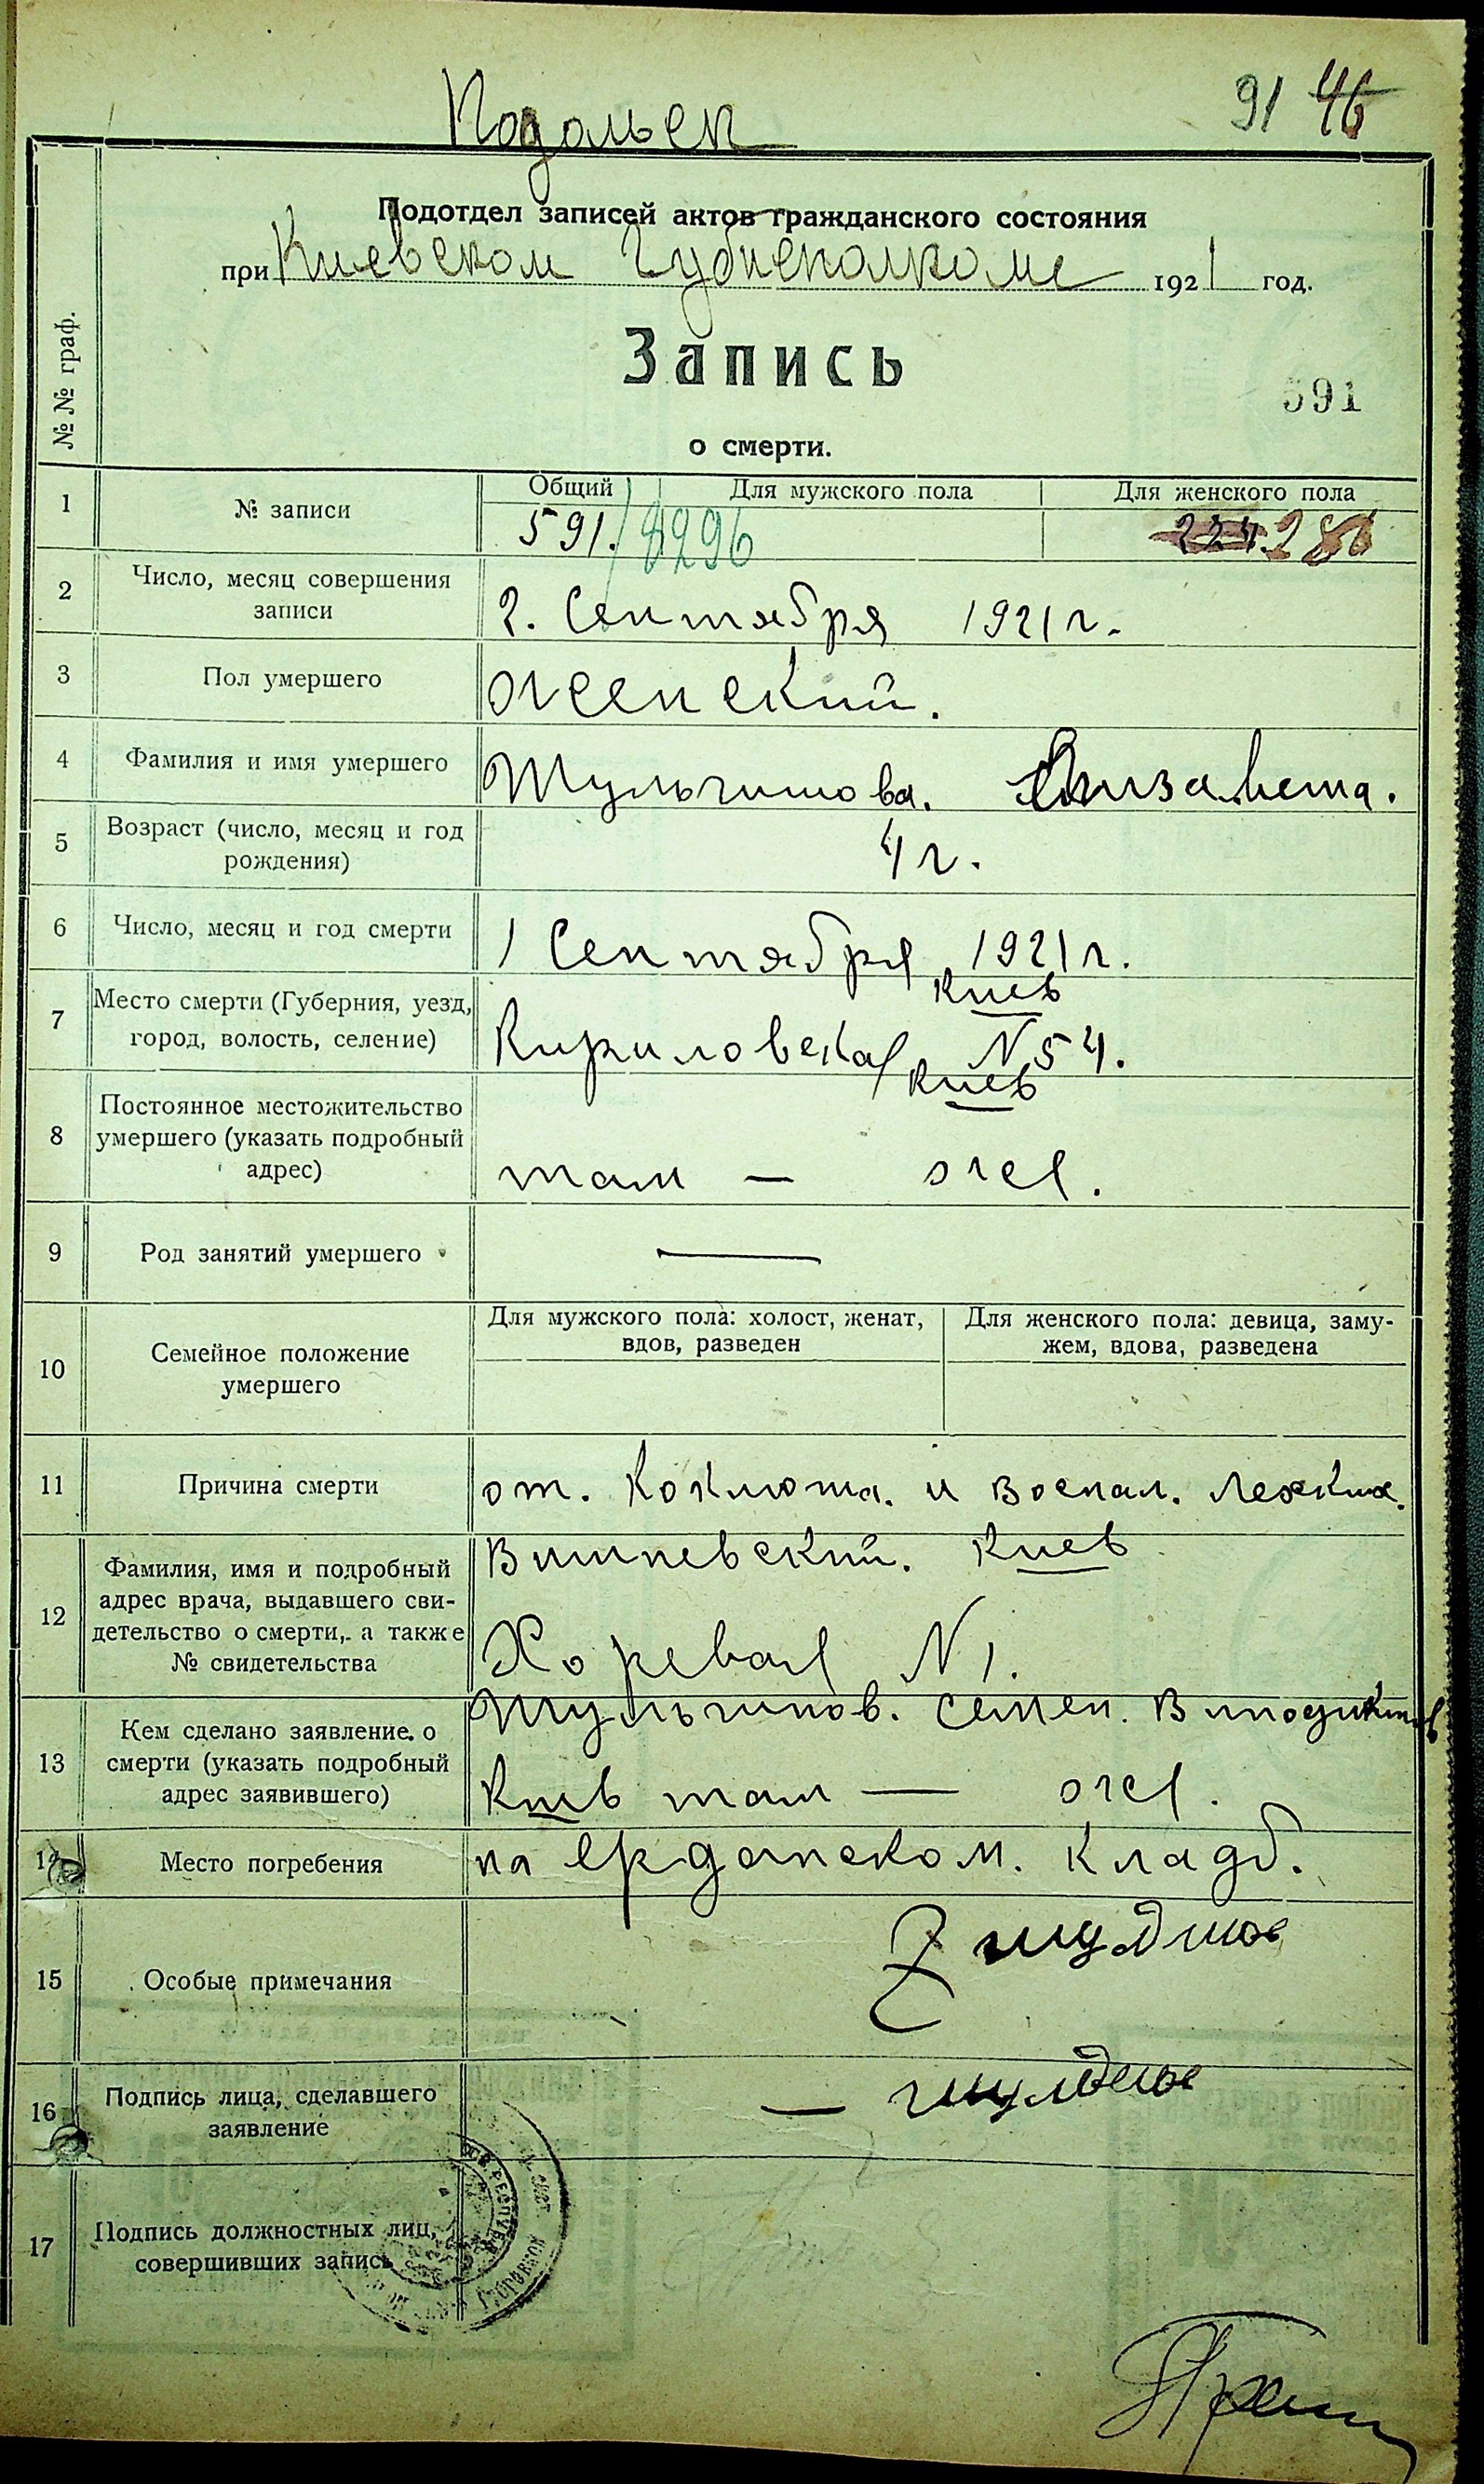 91 46
Подольск
Подотдел записей актов гражданского состояния
при Киевском Губисполкоме 1921 год.
№ № граф.
Запись
591
о смерти.
1 № записи Общий Для мужского пола Для женского пола
591. 8296 286
2 Число, месяц совершения
записи
2. Сентября 1921 г.
3 Пол умершего женский.
4 Фамилия и имя умершего Шульгинова. Елизавета.
5 Возраст (число, месяц и год
рождения)
4 г.
6 Число, месяц и год смерти 1 Сентября 1921 г.
7 Место смерти (Губерния, уезд,
город, волость, селение)
Киев
Кириловская N 54.
8 Постоянное местожительство
умершего (указать подробный
адрес)
Киев
там — же.
9 Род занятий умершего —
10 Семейное положение
умершего
Для мужского пола: холост, женат,
вдов, разведен
Для женского пола: девица, заму-
жем, вдова, разведена
11 Причина смерти от. Коклюша. и воспал. легких.
12 Фамилия, имя и подробный
адрес врача, выдавшего сви-
детельство о смерти, а также
№ свидетельства
Вишневский. Киев
Хоревая N 1.
13 Кем сделано заявление о
смерти (указать подробный
адрес заявившего)
Шульгинов. Семен.
Киев там — же.
14 Место погребения на Ерданском. кладб.
15 Особые примечания
16 Подпись лица, сделавшего
заявление
17 Подпись должностных лиц,
совершивших запись